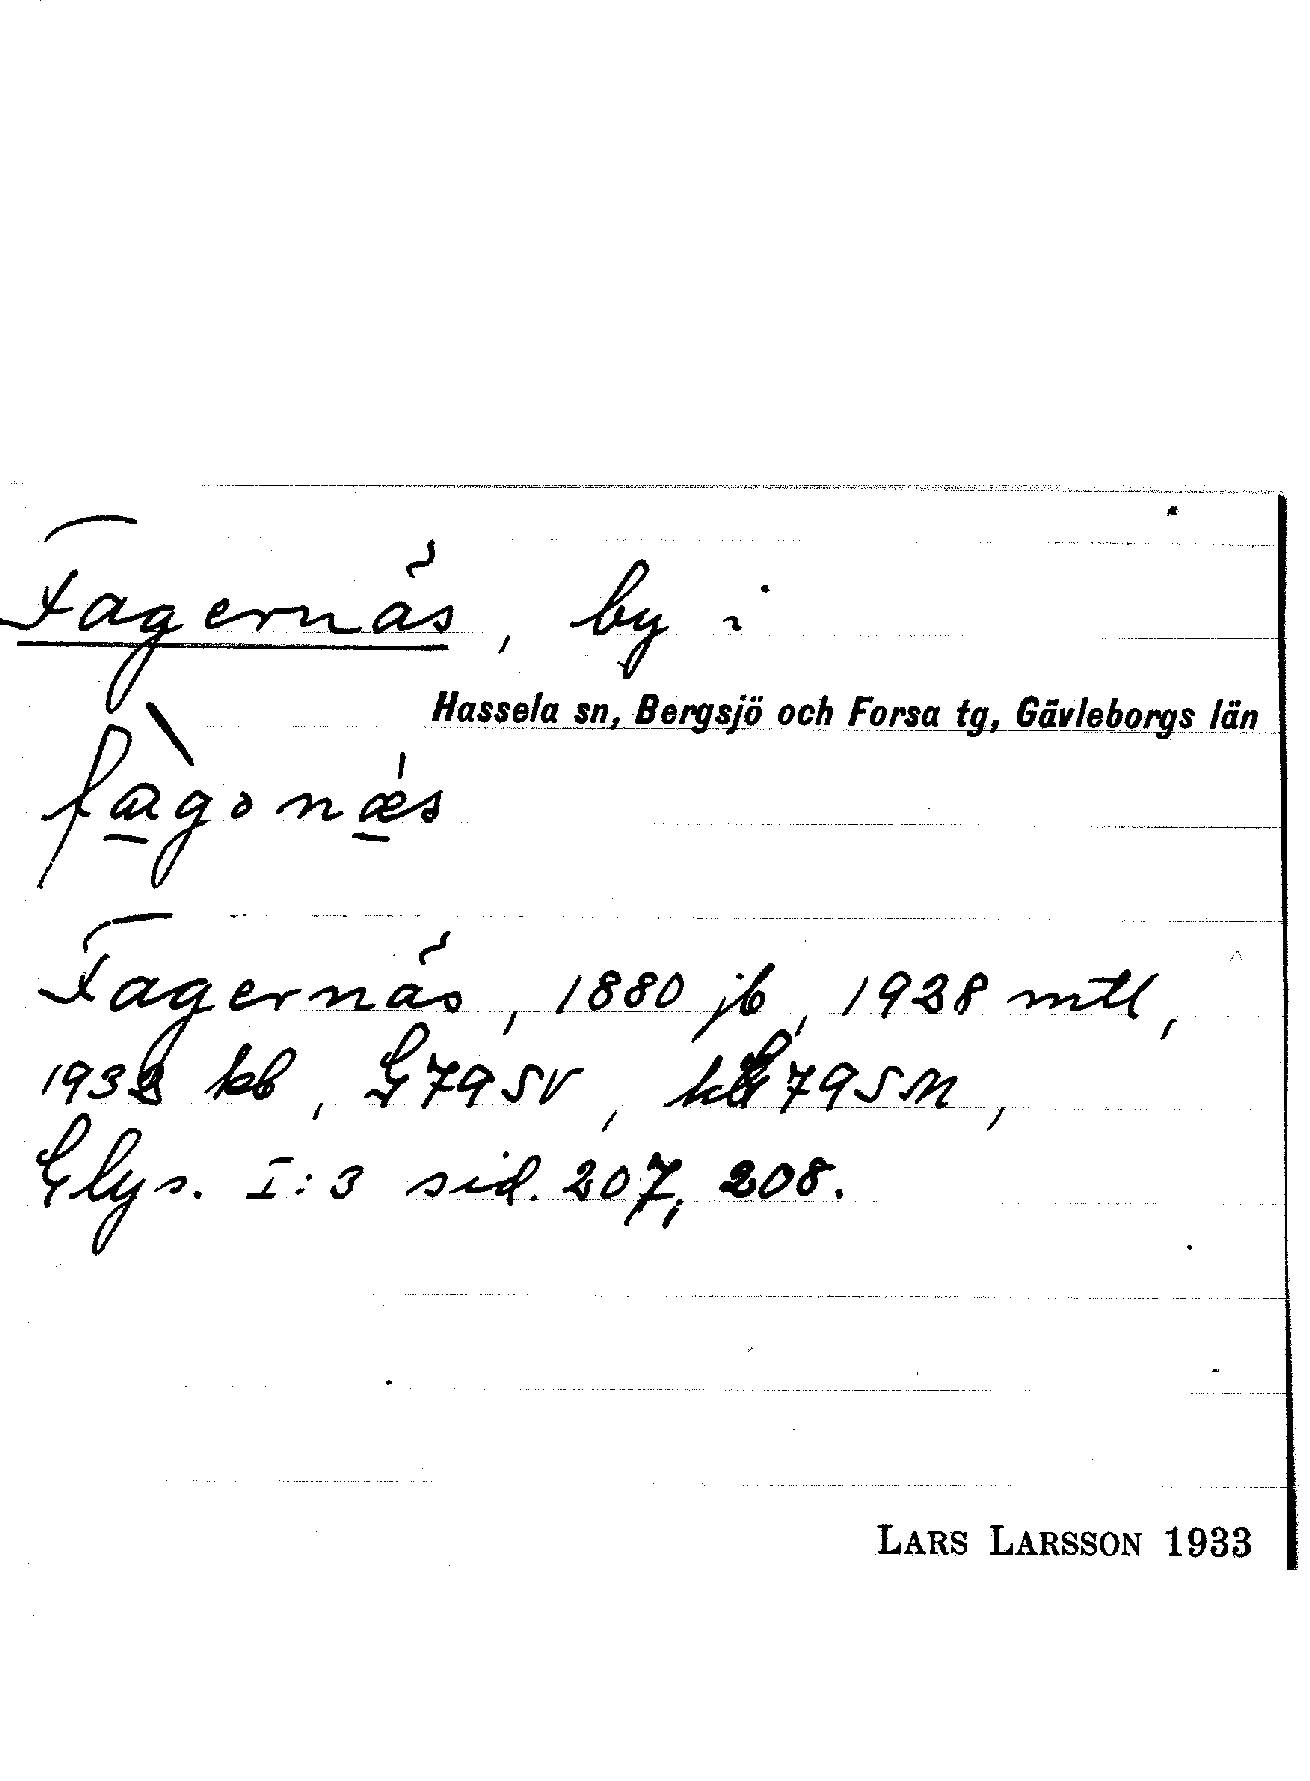 Fagernäs, by i
Hassela sn, Bergsjö och Forsa tg, Gävleborgs län
fàgonǽs
Fagernäs, 1880 jb, 1928 mtl,
1932 kb, G79SV, kG79SM,
Glys. I:3 sid. 207, 208.
LARS LARSSON 1933